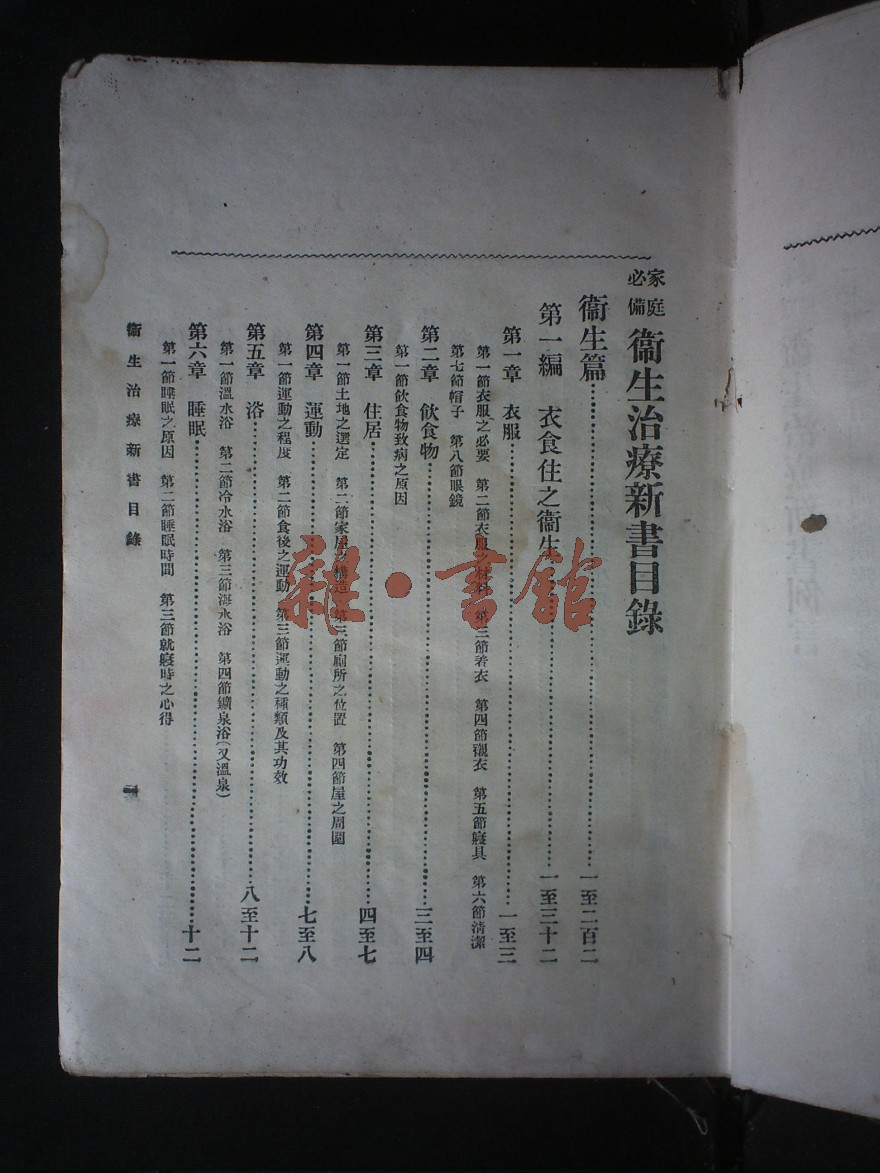 家庭必備 衞生治療新書目錄
衞生篇……一至二百二
第一編 衣食住之衞生……一至三十二
第一章 衣服……一至三
第一節衣服之必要 第二節衣服之材料 第三節着衣 第四節襯衣 第五節寢具 第六節淸潔
第七節帽子 第八節眼鏡
第二章 飮食物……三至四
第一節飮食物致病之原因
第三章 住居……四至七
第一節土地之選定 第二節家屋之構造 第三節廁所之位置 第四節屋之周圍
第四章 運動……七至八
第一節運動之程度 第二節食後之運動 第三節運動之種類及其功效
第五章 浴……八至十二
第一節溫水浴 第二節冷水浴 第三節海水浴 第四節鑛泉浴(又溫泉)
第六章 睡眠……十二
第一節睡眠之原因 第二節睡眠時間 第三節就寢時之心得
衞生治療新書目錄
一
雜·書館